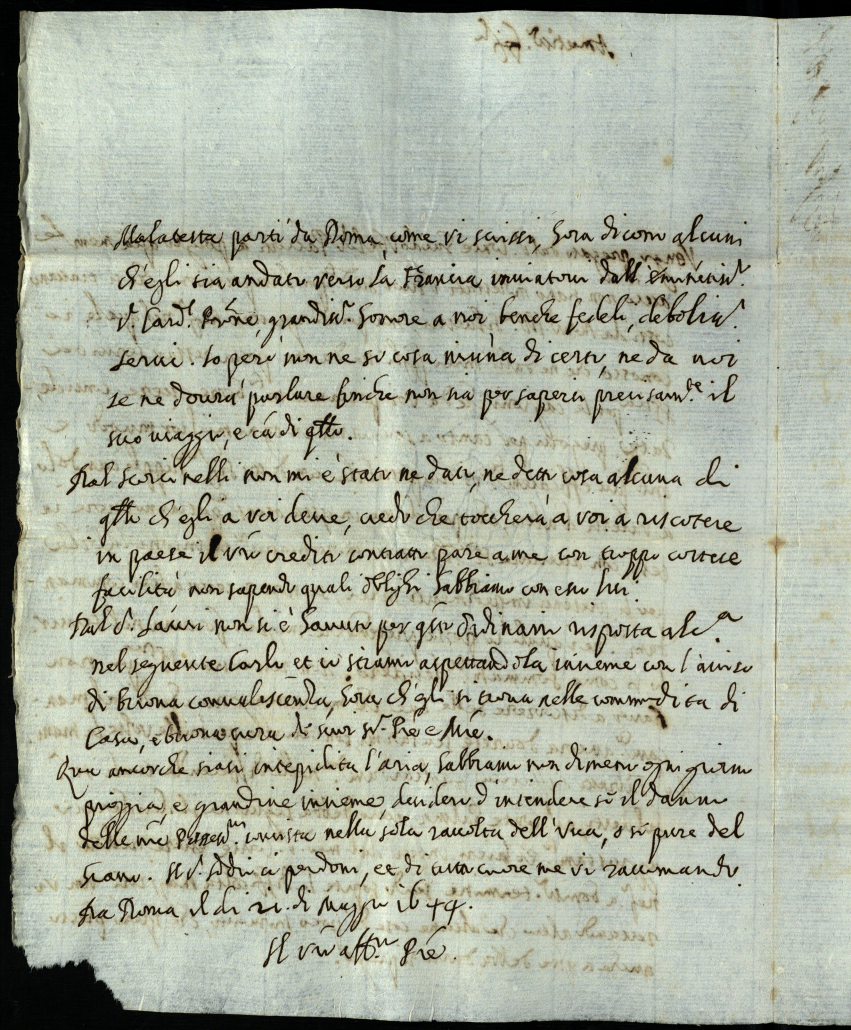 Malatesta partì da Roma, come vi scrissi, hora dicono alcuni
ch'egli sia andato verso la Francia inviatovi dall'Eminentiss.º
S.r Card.l Pad.ne, grandiss.º honore a noi benche fedeli, deboliss.i
servi. Io però non ne sò cosa niuna di certo, ne da noi
se ne dovrà parlare finche non sia per sapersi precisam.te il
suo viaggio, e cā di q.llo.
Dal Scorcinelli non mi è stato ne dato, ne detto cosa alcuna di
q.llo ch'egli a voi deve, credo che toccherà a voi a riscotere
in paese il vr̄o credito contratto pare a me con troppo cortese
facilità non sapendo quali oblighi habbiamo con esso lui.
Dal S.r Lauri non si è havuto per q.sto Ordinario risposta alc.a
nel seguente Carlo et io stiamo aspettandola insieme con l'aviso
di buona convalescenza, hora ch'egli si trova nelle commodità di
Casa, e buona cura de suoi S.ri Prē e Mrē.
Qua ancorche siasi intepidita l'aria, habbiamo non dimeno ogni giorno
pioggia, e grandine insieme, desidero d'intendere se il danno
delle mie consista nella sola raccolta dell'Uva, o si pure del
Grano. Il S.r Iddio ci perdoni, et di tutto cuore me vi raccomando.
Da Roma il di 21. di Maggio 1644.
Il vr̄o aff.mo Prē.